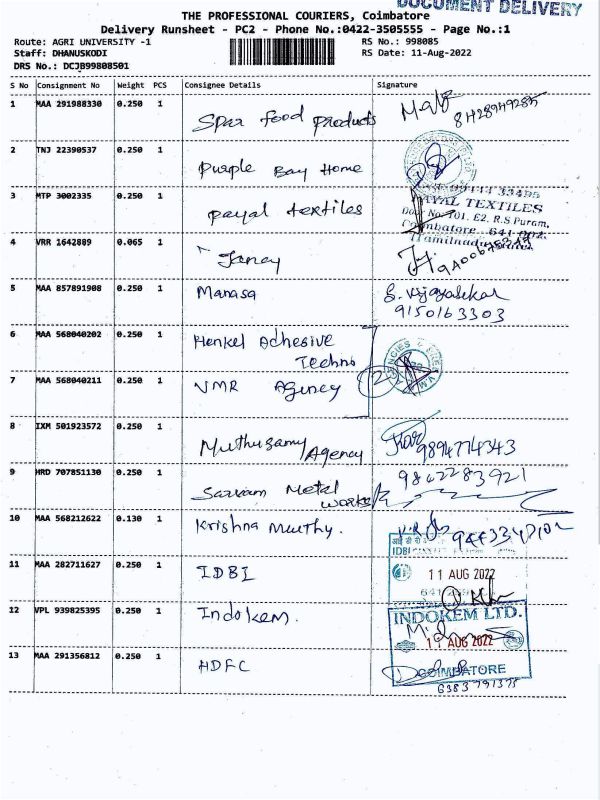 DOCUMENT DELIVERY
THE PROFESSIONAL COURIERS, Coimbatore
Delivery Runsheet - PC2 - Phone No.:0422-3505555 - Page No.:1
Route: AGRI UNIVERSITY -1 RS No.: 998085
Staff: DHANUSKODI RS Date: 11-Aug-2022
DRS No.: DCJB99808501
S No Consignment No Weight PCS Consignee Details Signature
1 MAA 291988330 0.250 1 Spar food products
2 TNJ 22390537 0.250 1 Purple Bay Home
3 MTP 3002335 0.250 1 payal textiles
PAYAL TEXTILES
Door No. 101, E2, R.S Puram,
Coimbatore - 641 002.
Tamilnadu
4 VRR 1642889 0.065 1 Janey
5 MAA 857891908 0.250 1 Manasa S. Vijayasekar
9150163303
6 MAA 568040202 0.250 1 Henkel Adhesive
Techno
AGENCIES
7 MAA 568040211 0.250 1 VMR Agency 2
8 IXM 501923572 0.250 1 Muthusamy Agency 9894774343
9 HRD 707851130 0.250 1 Sarvam Metal works 9842283921
10 MAA 568212622 0.130 1 Krishna Murthy.
IDBI
11 MAA 282711627 0.250 1 IDBI 11 AUG 2022
12 VPL 939825395 0.250 1 Indokem. INDOKEM LTD.
11 AUG 2022
13 MAA 291356812 0.250 1 HDFC COIMBATORE
6383791375